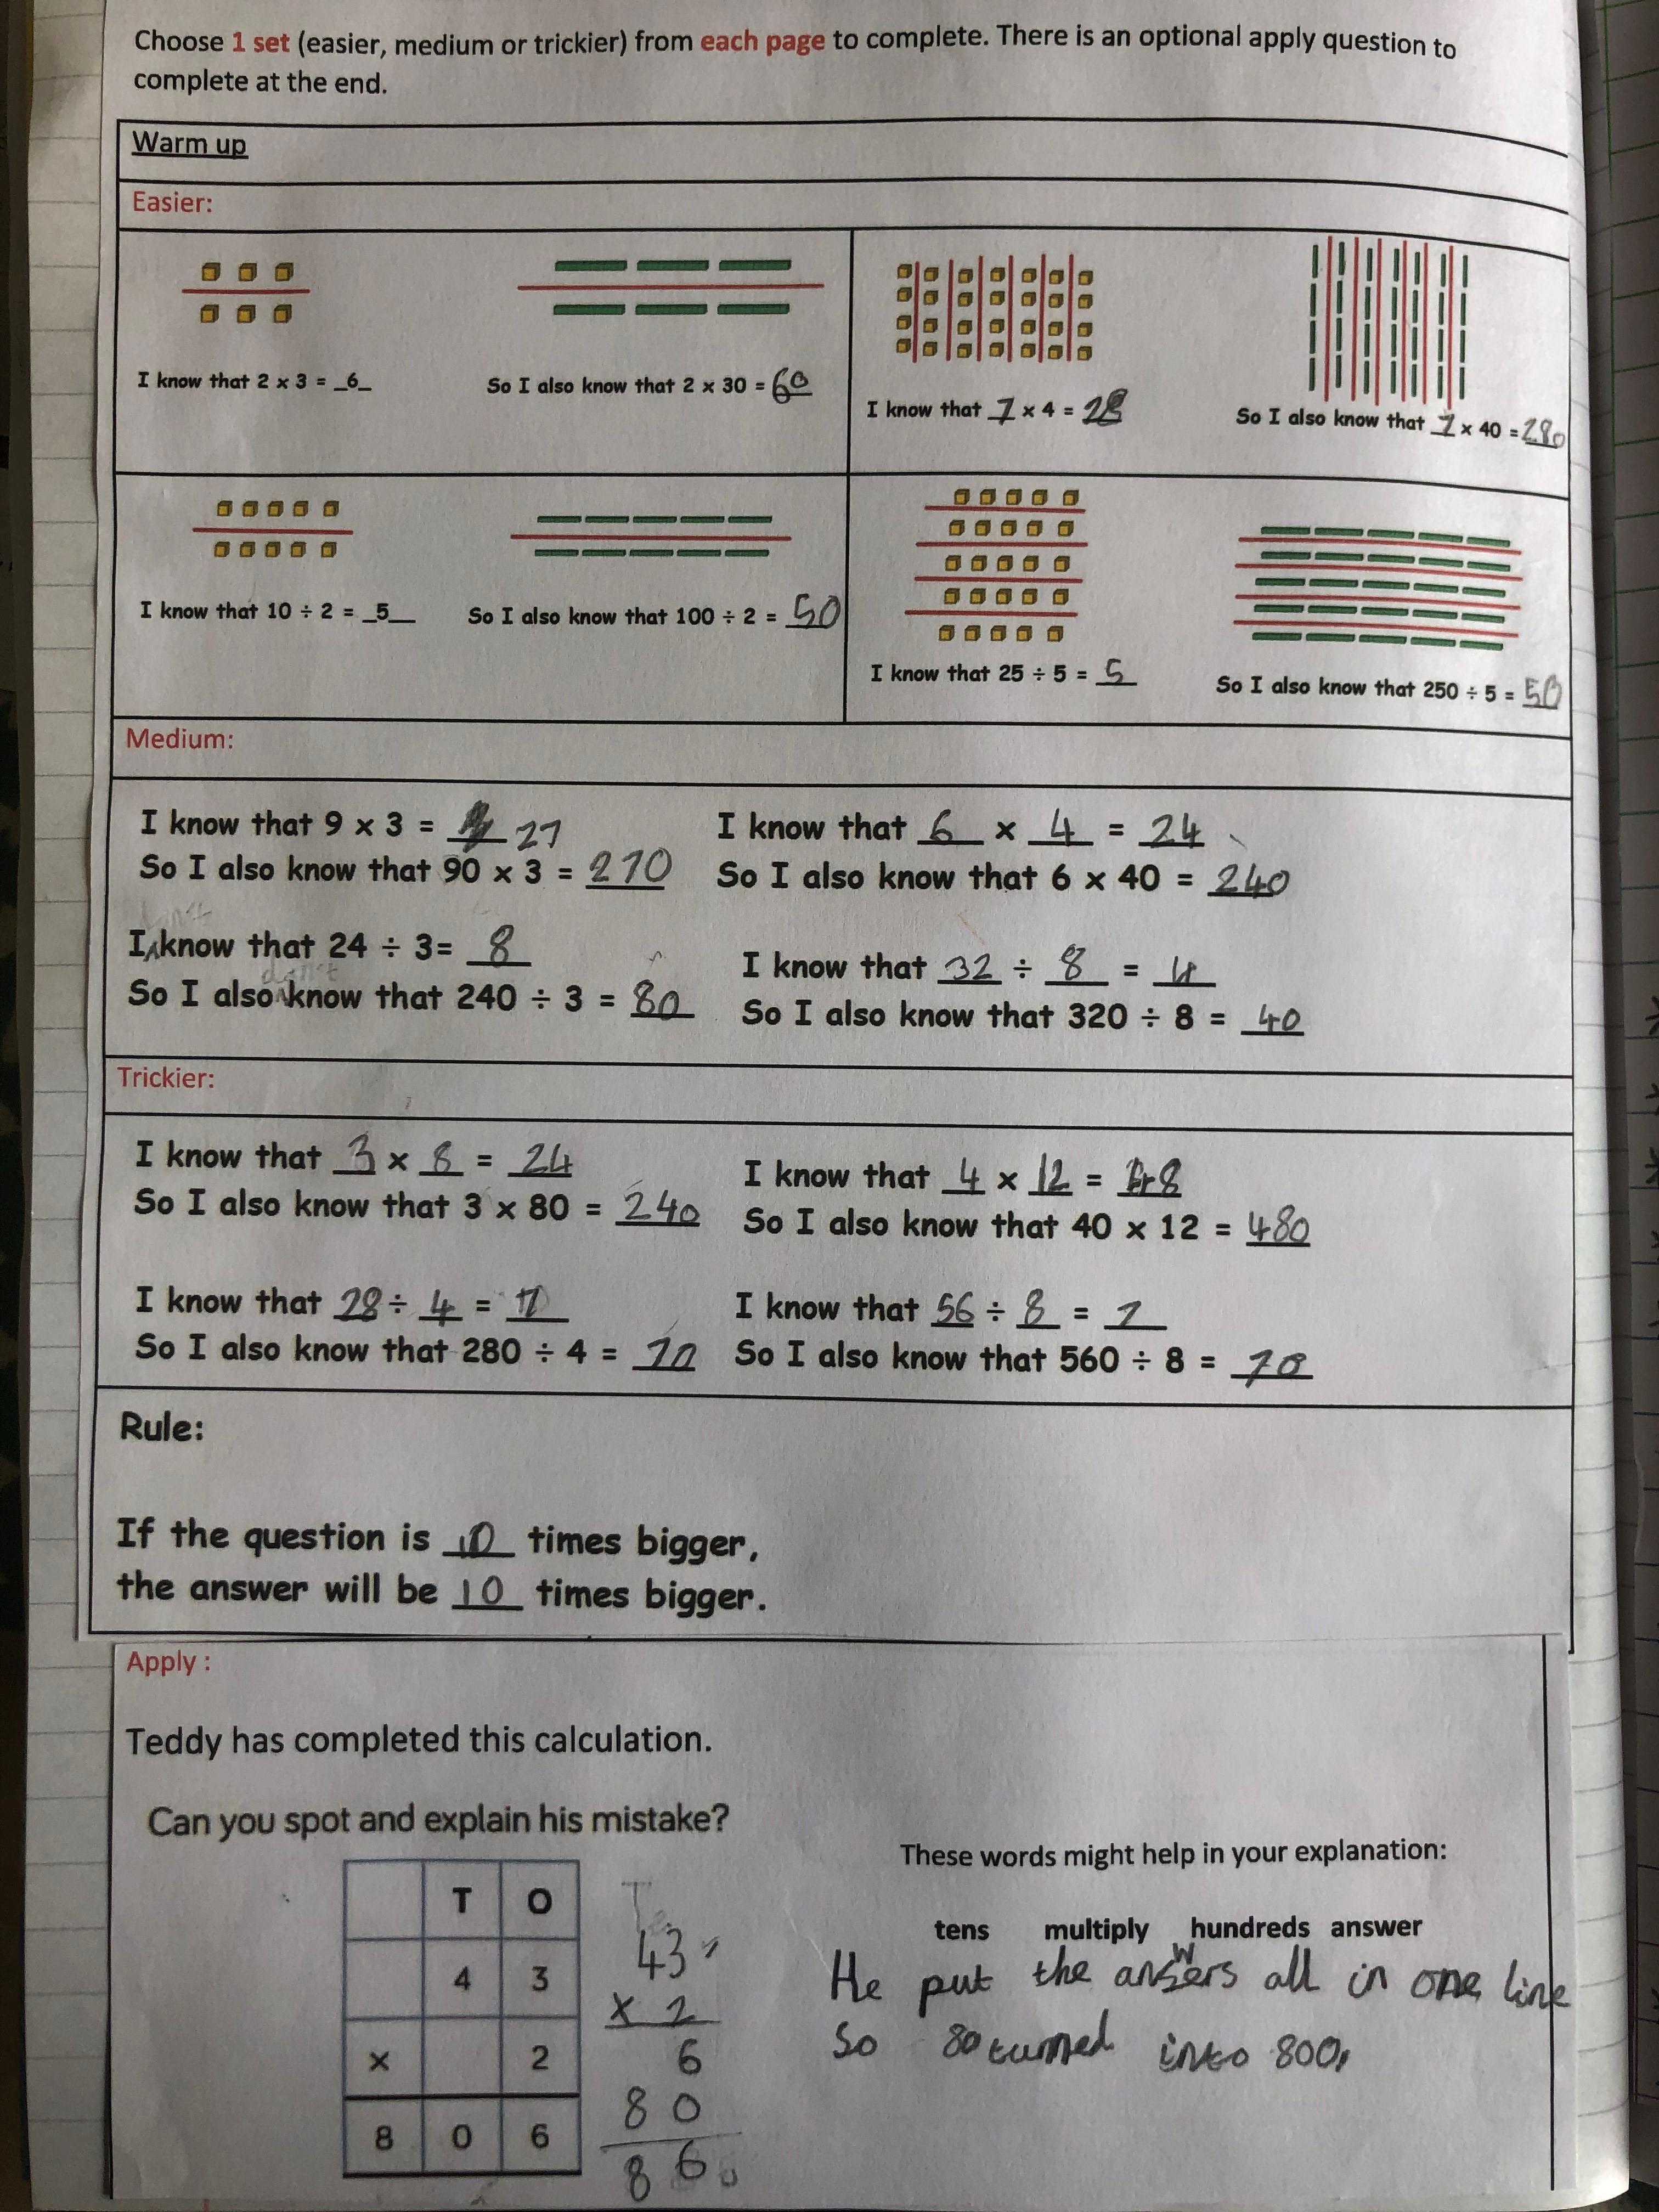 Choose 1 set (easier, medium or trickier) from each page to complete. There is an optional apply question to
complete at the end.
Warm up
Easier:
I know that 2 x 3 = _6_
So I also know that 2 x 30 = 60
I know that 7 x 4 = 28
So I also know that 7 x 40 = 280
I know that 10 ÷ 2 = _5_
So I also know that 100 ÷ 2 = 50
I know that 25 ÷ 5 = 5
So I also know that 250 ÷ 5 = 50
Medium:
I know that 9 x 3 = 27
So I also know that 90 x 3 = 270
I know that 6 x 4 = 24
So I also know that 6 x 40 = 240
I know that 24 ÷ 3= 8
So I also know that 240 ÷ 3 = 80
I know that 32 ÷ 8 = 4
So I also know that 320 ÷ 8 = 40
Trickier:
I know that 3 x 8 = 24
So I also know that 3 x 80 = 240
I know that 4 x 12 = 48
So I also know that 40 x 12 = 480
I know that 28 ÷ 4 = 7
So I also know that 280 ÷ 4 = 70
I know that 56 ÷ 8 = 7
So I also know that 560 ÷ 8 = 70
Rule:
If the question is 10 times bigger,
the answer will be 10 times bigger.
Apply :
Teddy has completed this calculation.
Can you spot and explain his mistake?
T O
4 3
x 2
8 0 6
43
x 2
6
80
86
These words might help in your explanation:
tens multiply hundreds answer
He put the answers all in one line
So 80 turned into 800.